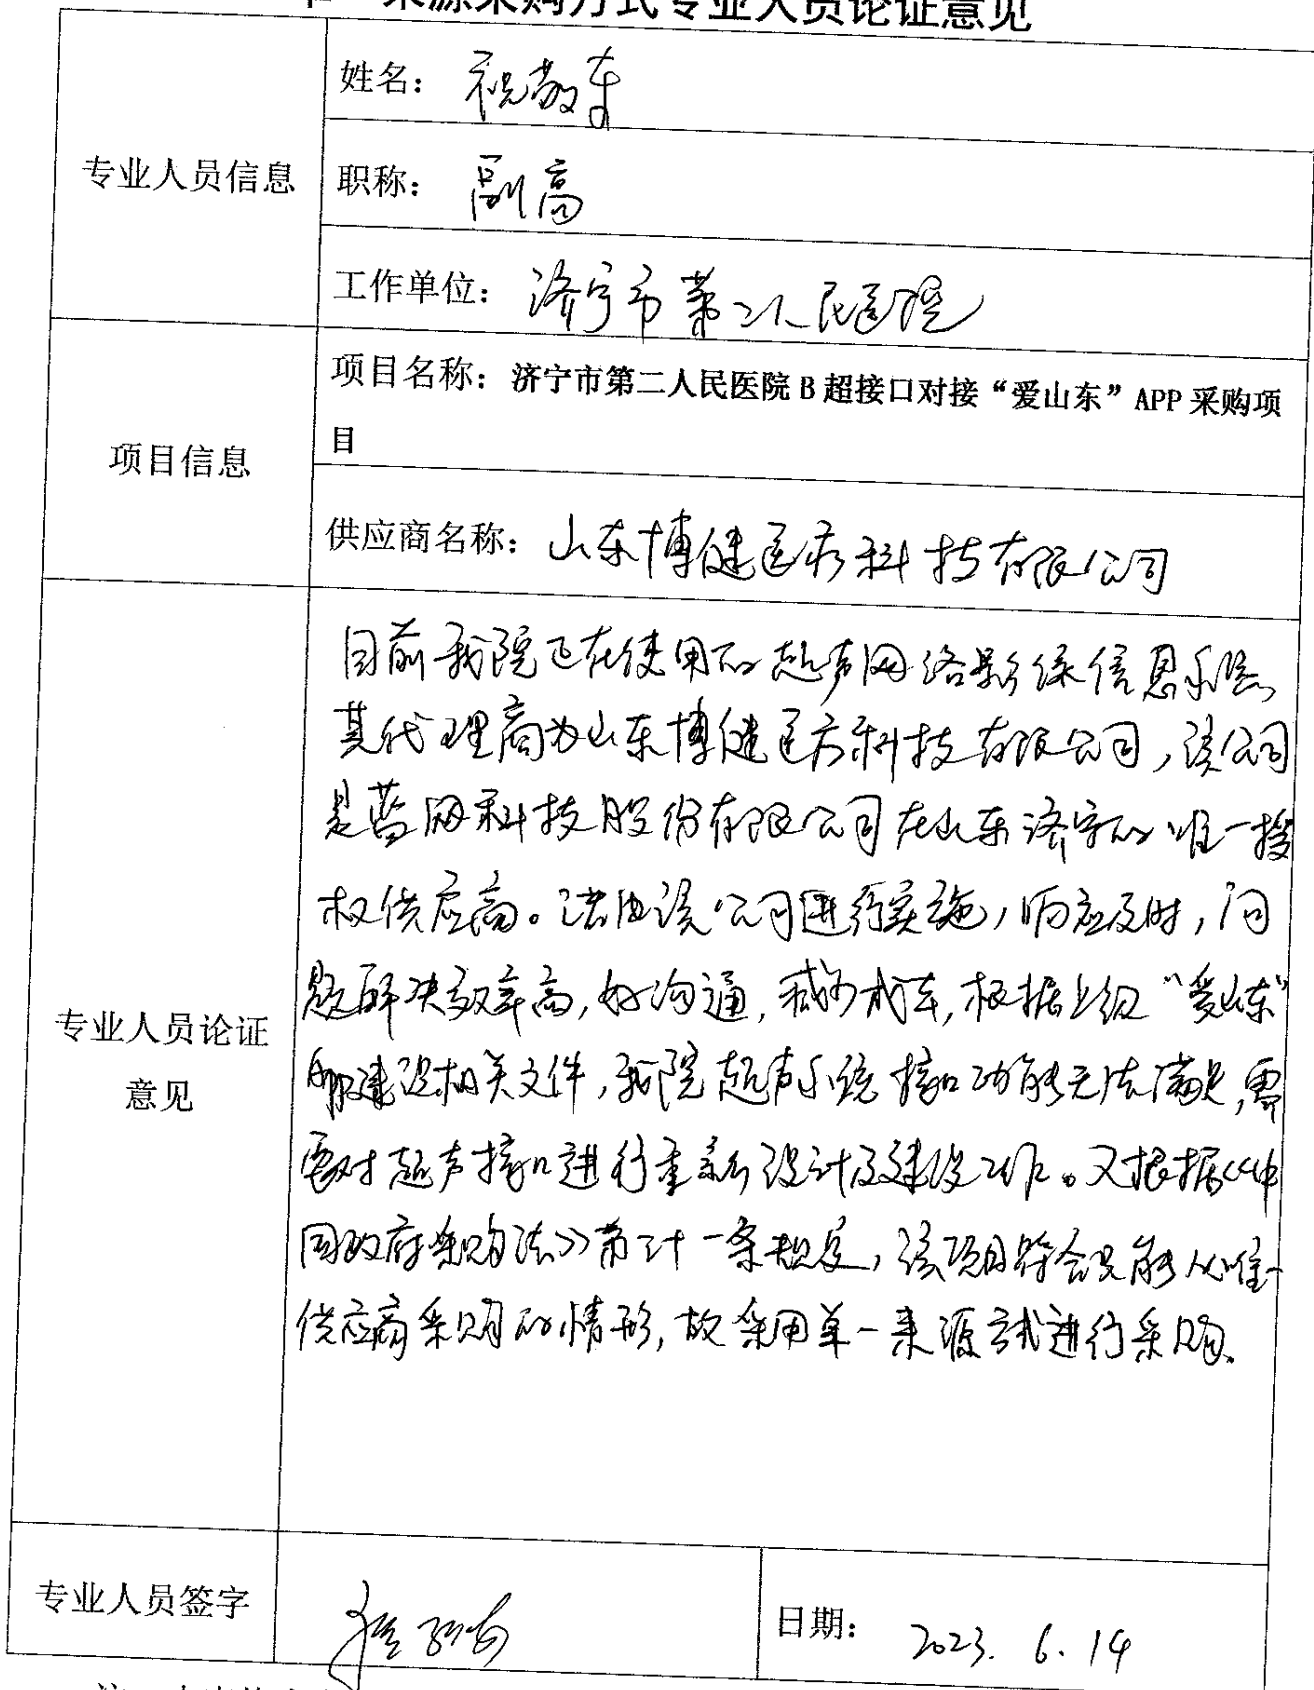 一来源采购方式专业人员论证意见
专业人员信息
姓名：祝敬东
职称：副高
工作单位：济宁市第二人民医院
项目信息
项目名称：济宁市第二人民医院B超接口对接“爱山东”APP采购项
目
供应商名称：山东博健医疗科技有限公司
专业人员论证
意见
目前我院正在使用的超声网络影像信息系统，
其代理商为山东博健医疗科技有限公司，该公司
是蓝网科技股份有限公司在山东济宁的唯一授
权供应商。洪由该公司进行实施，响应及时，问
题解决效率高，好沟通，减少成本，根据上级“爱山东”
建设相关文件，我院超声系统接口功能无法满足，需
要对超声接口进行重新设计及建设工作。又根据《中
国政府采购法》第三十一条规定，该项目符合只能从唯一
供应商采购的情形，故采用单一来源方式进行采购。
专业人员签字
日期：2023.6.14